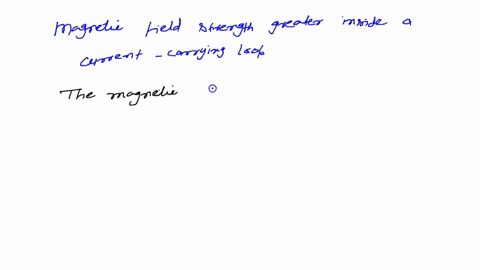 Magnetic field strength greater inside a
current - carrying loop
The magnetic